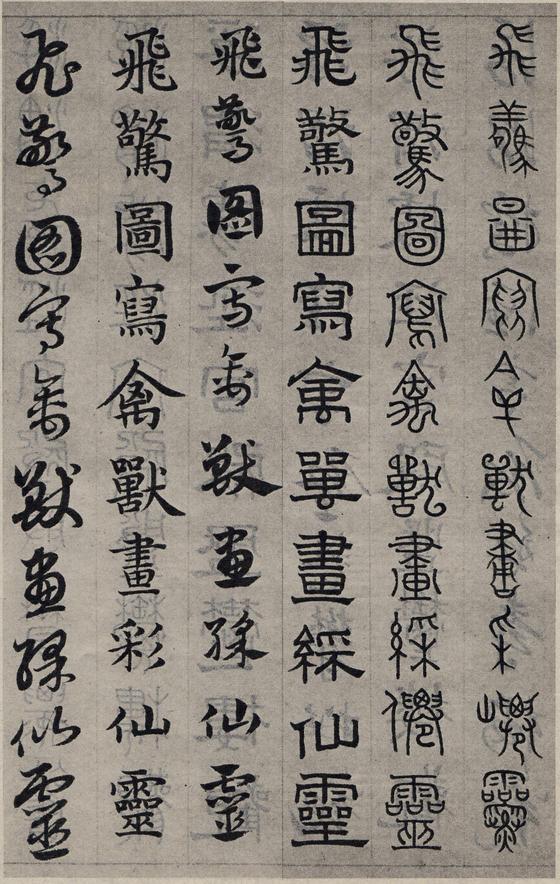 飛驚啚寫禽獸畫采僊靈
飛驚圖寫禽獸畫綵僊靈
飛驚圖寫禽獸畫綵仙靈
飛驚圖寫禽獸畫綵仙靈
飛驚圖寫禽獸畫彩仙靈
飛驚圖寫禽獸畫綵仙靈